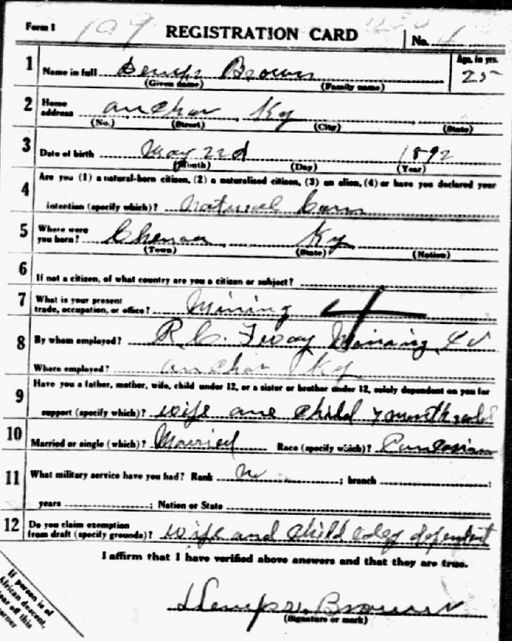 Form 1 109 REGISTRATION CARD No. 4
1 Name in full Demps Brown Age, in yrs. 25
(Given name) (Family name)
2 Home address Anchor Ky
(No.) (Street) (City) (State)
3 Date of birth May 22d 1892
(Month) (Day) (Year)
4 Are you (1) a natural-born citizen, (2) a naturalized citizen, (3) an alien, (4) or have you declared your
intention (specify which)? Natural born
5 Where were you born? Chenoa Ky
(Town) (State) (Nation)
6 If not a citizen, of what country are you a citizen or subject?
7 What is your present trade, occupation, or office? Mining
8 By whom employed? R. C. Mining Co
Where employed? Anchor Ky
9 Have you a father, mother, wife, child under 12, or a sister or brother under 12, solely dependent on you for
support (specify which)? wife and child 7 months old
10 Married or single (which)? Married Race (specify which)? Caucasian
11 What military service have you had? Rank No ; branch
years ; Nation or State
12 Do you claim exemption from draft (specify grounds)? wife and child dependent
I affirm that I have verified above answers and that they are true.
If person is of
African descent,
tear off this
corner
Demps Brown
(Signature or mark)